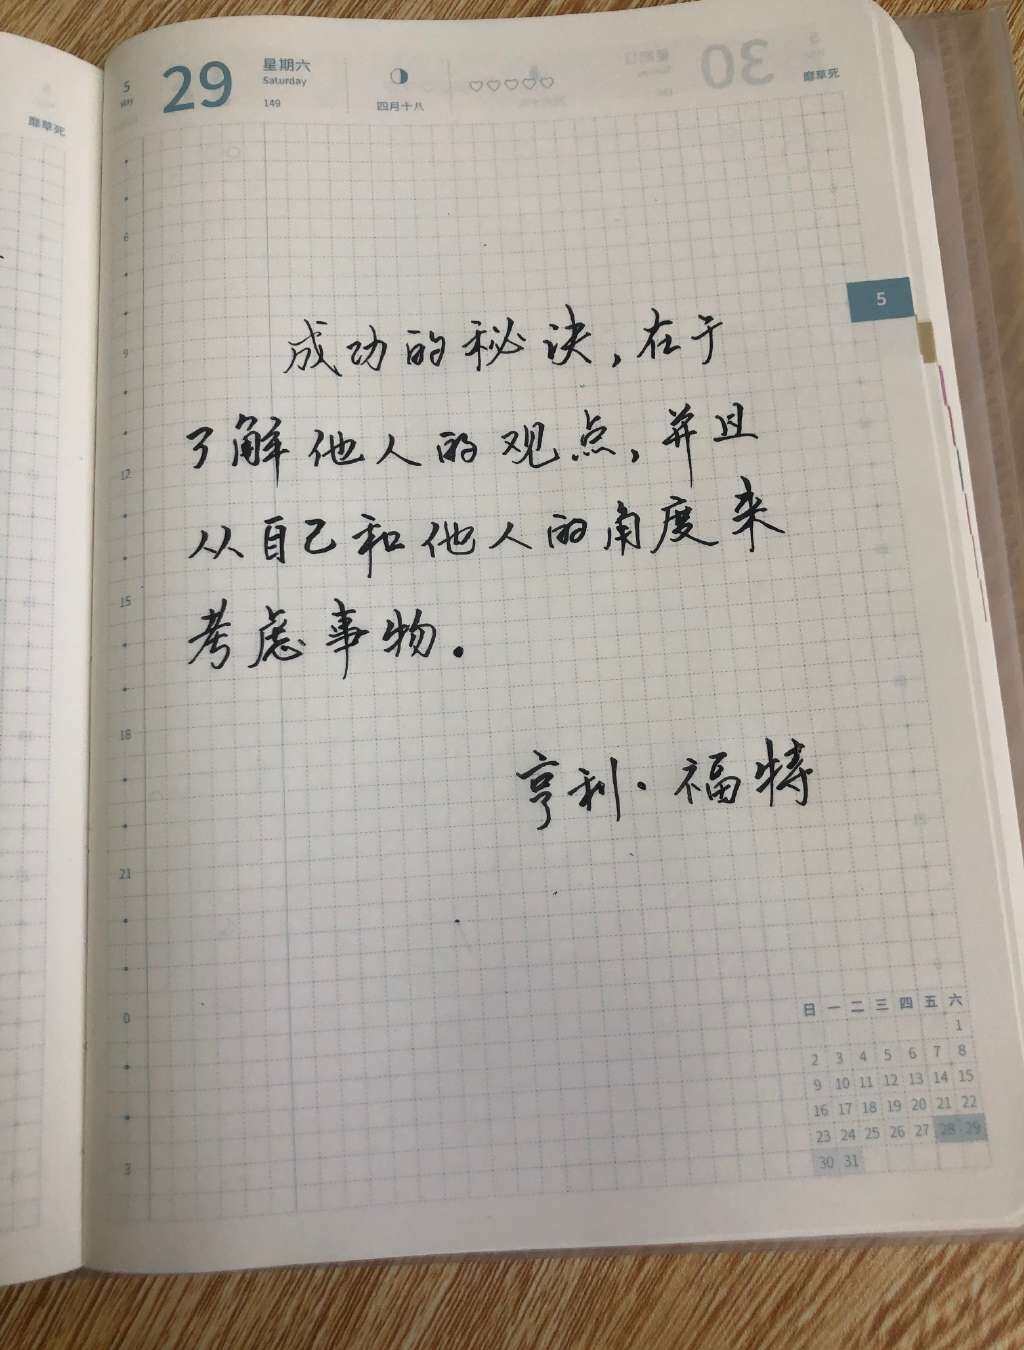 5
MAY
29
星期六
Saturday
149
四月十八
靡草死
30
靡草死
5
6
9
12
15
18
21
0
3
成功的秘诀,在于
了解他人的观点,并且
从自己和他人的角度来
考虑事物.
亨利·福特
日 一 二 三 四 五 六
1
2 3 4 5 6 7 8
9 10 11 12 13 14 15
16 17 18 19 20 21 22
23 24 25 26 27 28 29
30 31